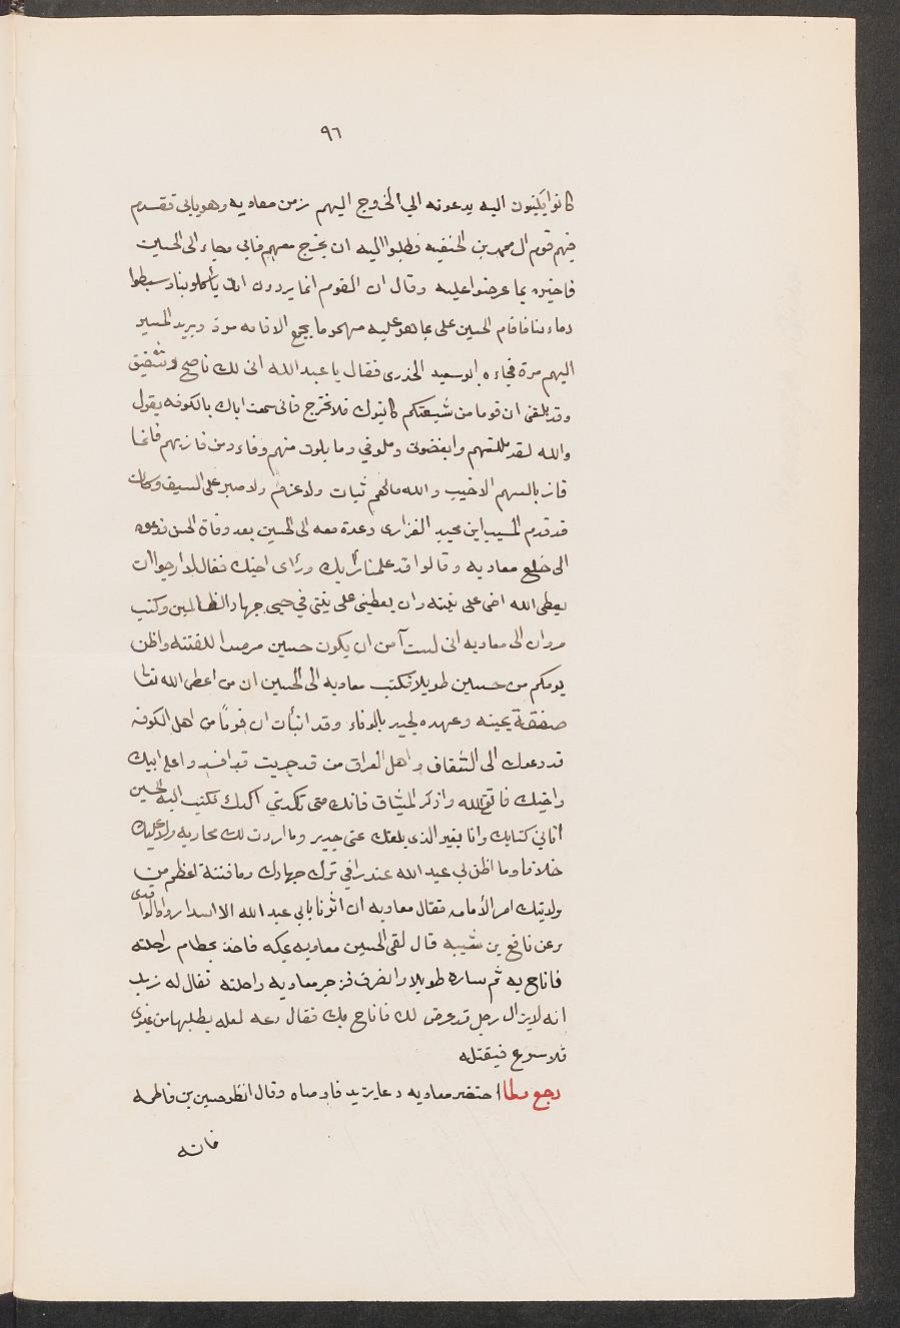 ٩٦
كانوا يكتبون اليه يدعونه الى الخروج اليهم زمن معاويه وهو يابى فقدم
منهم قوم الى محمد بن الحنفيه فطلبوا اليه ان يخرج معهم فابى وجاء الى الحسين
فاخبره بما عرضوا عليه وقال ان القوم انما يريدون ان ياكلوا بنا ويسيطوا
دماءنا فاقام الحسين على ما هو عليه مهموما يجمع الاقامه مرة ويريد المسير
اليهم مرة فجاءه ابو سعيد الخدرى فقال يا عبد الله انى لك ناصح وشفيق
وقد بلغنى ان قوما من شيعتكم كاتبوك فلا تخرج فانى سمعت اباك بالكوفه يقول
والله لقد مللتهم وابغضونى وملونى وما بلوت منهم وفاء ومن فاز بهم فانما
فاز بالسهم الاخيب والله مالهم ثبات ولا عزم ولا صبر على السيف وكان
قد قدم المسيب ابن عبيد الفزارى وعدة معه الى الحسين بعد وفاة الحسن فدعوه
الى خلع معاويه وقالوا قد علمنا رأيك ورأى اخيك فقال لدارجوا ان
يعطى الله اخى على نيته وان يعطينى على نيتى في حبى جهاد الظالمين وكتب
مروان الى معاويه انى لست آمن ان يكون حسين مرصدا للفتنه واظن
يومكم من حسين طويلا فكتب معاويه الى الحسين ان من اعطى الله
صفقة يمينه وعهده لجدير بالوفاء وقد انبأت ان قوما من اهل الكوفه
قد دعوك الى الشقاف واهل العراق من قد جربت قد افسدوا على ابيك
واخيك فاتق الله واذكر الميثاق فانك متى تكدنى اكدك فكتب اليه الحسين
اتانى كتابك وانا بغير الذى بلغك عنى جدير وما اردت لك محاربه ولا عليك
خلافا وما اظن لى عند الله عذرا في ترك جهادك وما فتنة اعظم من
ولايتك امر الأمه فقال معاويه ان اثرنا بابى عبد الله الا اسدا
وعن نافع بن شيبه قال لقى الحسين معاويه بمكه فاخذ بخطام راحلته
فاناخ به ثم ساره طويلا وانصرف فزجر معاويه راحلته فقال له يزيد
انه لا يزال رجل قد عرض لك فاناخ بك فقال دعه لعله يطلبها من غيرى
فلا يسوغ فيقتله
رجع ولما احتضر معاويه دعا يزيد فاوصاه وقال انظر حسين بن فاطمه
فانه